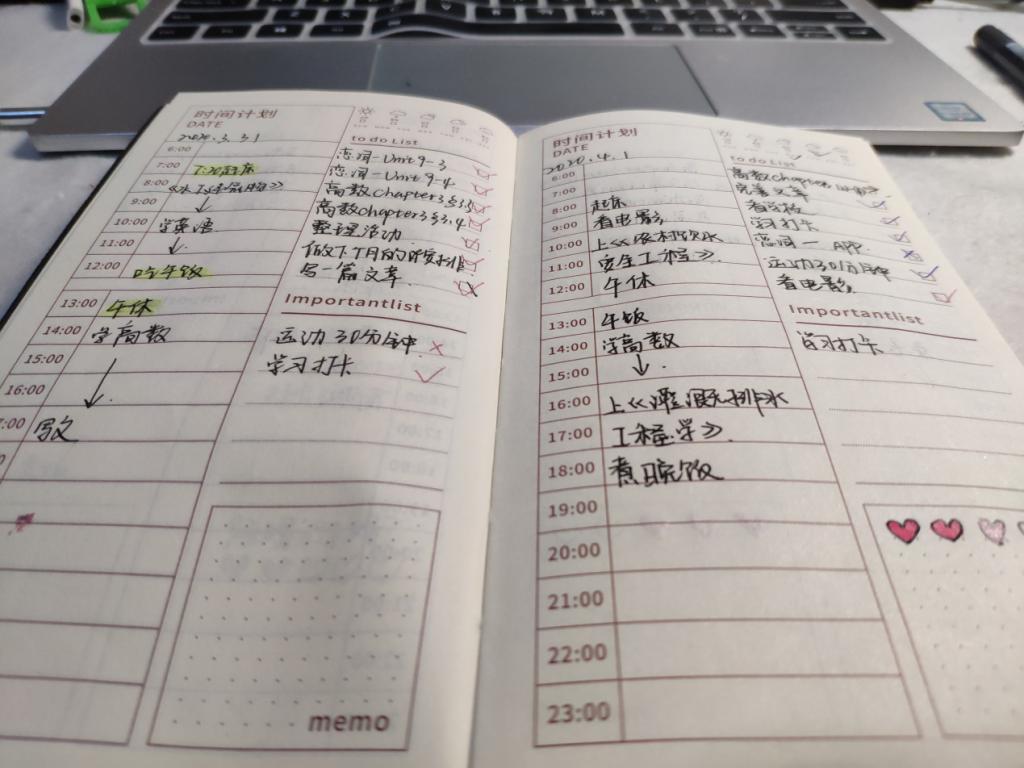 时间计划
DATE
2020.3.31
6:00
7:00 7:20起床
8:00
9:00
10:00 学英语
11:00
12:00 吃午饭
13:00 午休
14:00 学高数
15:00
16:00
7:00 写文
to do List
恋词-Unit 9-3
恋词-Unit 9-4
高数Chapter3
高数chapter3 3.4
整理活动
做下个月的
写一篇文章
Importantlist
运动30分钟
学习打卡
memo
时间计划
DATE
2020.4.1
6:00
7:00
8:00 起床
9:00 看电影
10:00 上《农村饮水
11:00 安全工程》
12:00 午休
13:00 午饭
14:00 学高数
15:00
16:00 上《灌溉排水
17:00 工程学》
18:00 煮晚饭
19:00
20:00
21:00
22:00
23:00
to do List
高数chapter
完善文章
学习打卡
恋词-APP
运动30分钟
看电影
Importantlist
学习打卡